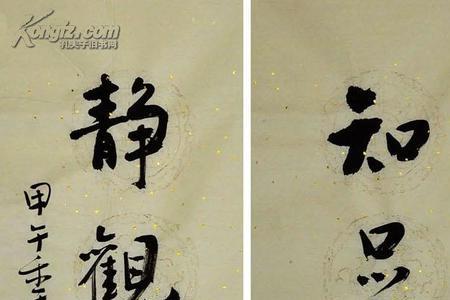 Kongfz.com
孔夫子旧书网
知品
静觀
甲午